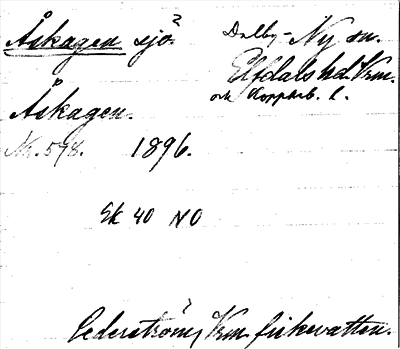 Åskagen sjö?
Dalby-Ny sn.
Elfdals hd. Vrm.
och Kopparb. l.
Åskagen.
Nr. 598. 1896.
Ek 40 NO
Cederström, Vrm fiskevatten.